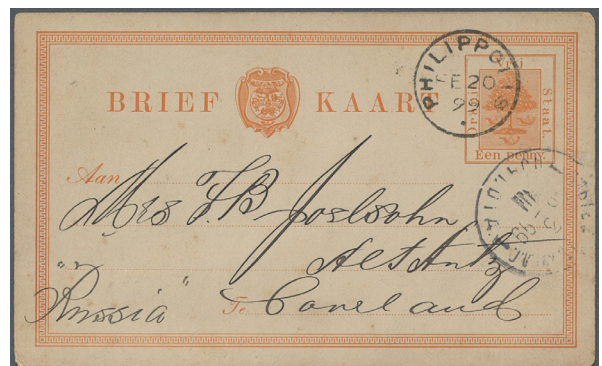 BRIEF KAARE
PHILIPPOLIS
FE 20
99
Staat.
Een penny.
Aan
Mrs F. B. Joelsohn
Alt Autz
"Russia"
Te Coureland